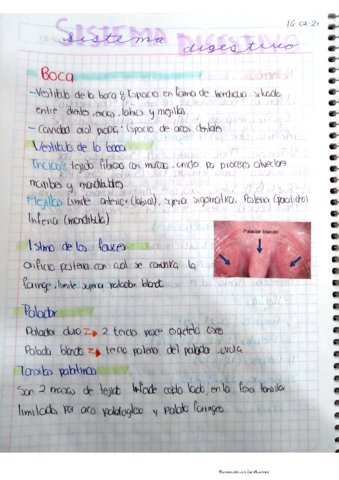 16-02-21
SISTEMA DIGESTIVO
sistema digestivo
Boca
- Vestíbulo de la boca: Espacio en forma de herradura situado
entre dientes, encías, labios y mejillas
- Cavidad oral propia: Espacio de arcos dentales
Vestíbulo de la boca
Encías: tejido fibroso con mucosa, unido por procesos alveolares
maxilares y mandibulares
Mejillas: límite anterior (labial), superior (cigomático), Posterior (parótides)
Inferior (mandíbula)
Istmo de las fauces
Orificio posterior con cual se comunica la
faringe, límite superior paladar blando
Paladar blando
Paladar
Paladar duro → 2 tercio esqueleto óseo
Paladar blando → tercio posterior del paladar, úvula
Tonsilas palatinas
Son 2 masas de tejido linfoide cada lado, en la fosa tonsilar
limitados por arco palatogloso y palatofaríngeo